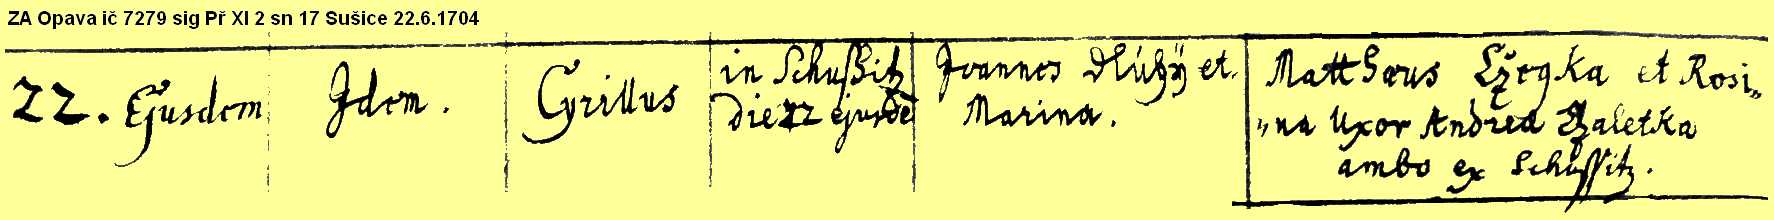 ZA Opava ič 7279 sig Př XI 2 sn 17 Sušice 22.6.1704
22. Ejusdem
Idem.
Cyrillus
in Schussitz
Die 22 ejusde
Joannes Dluhÿ et
Marina.
Matthæus et Rosi„
„na Uxor Andrea
ambo ex Schussitz.